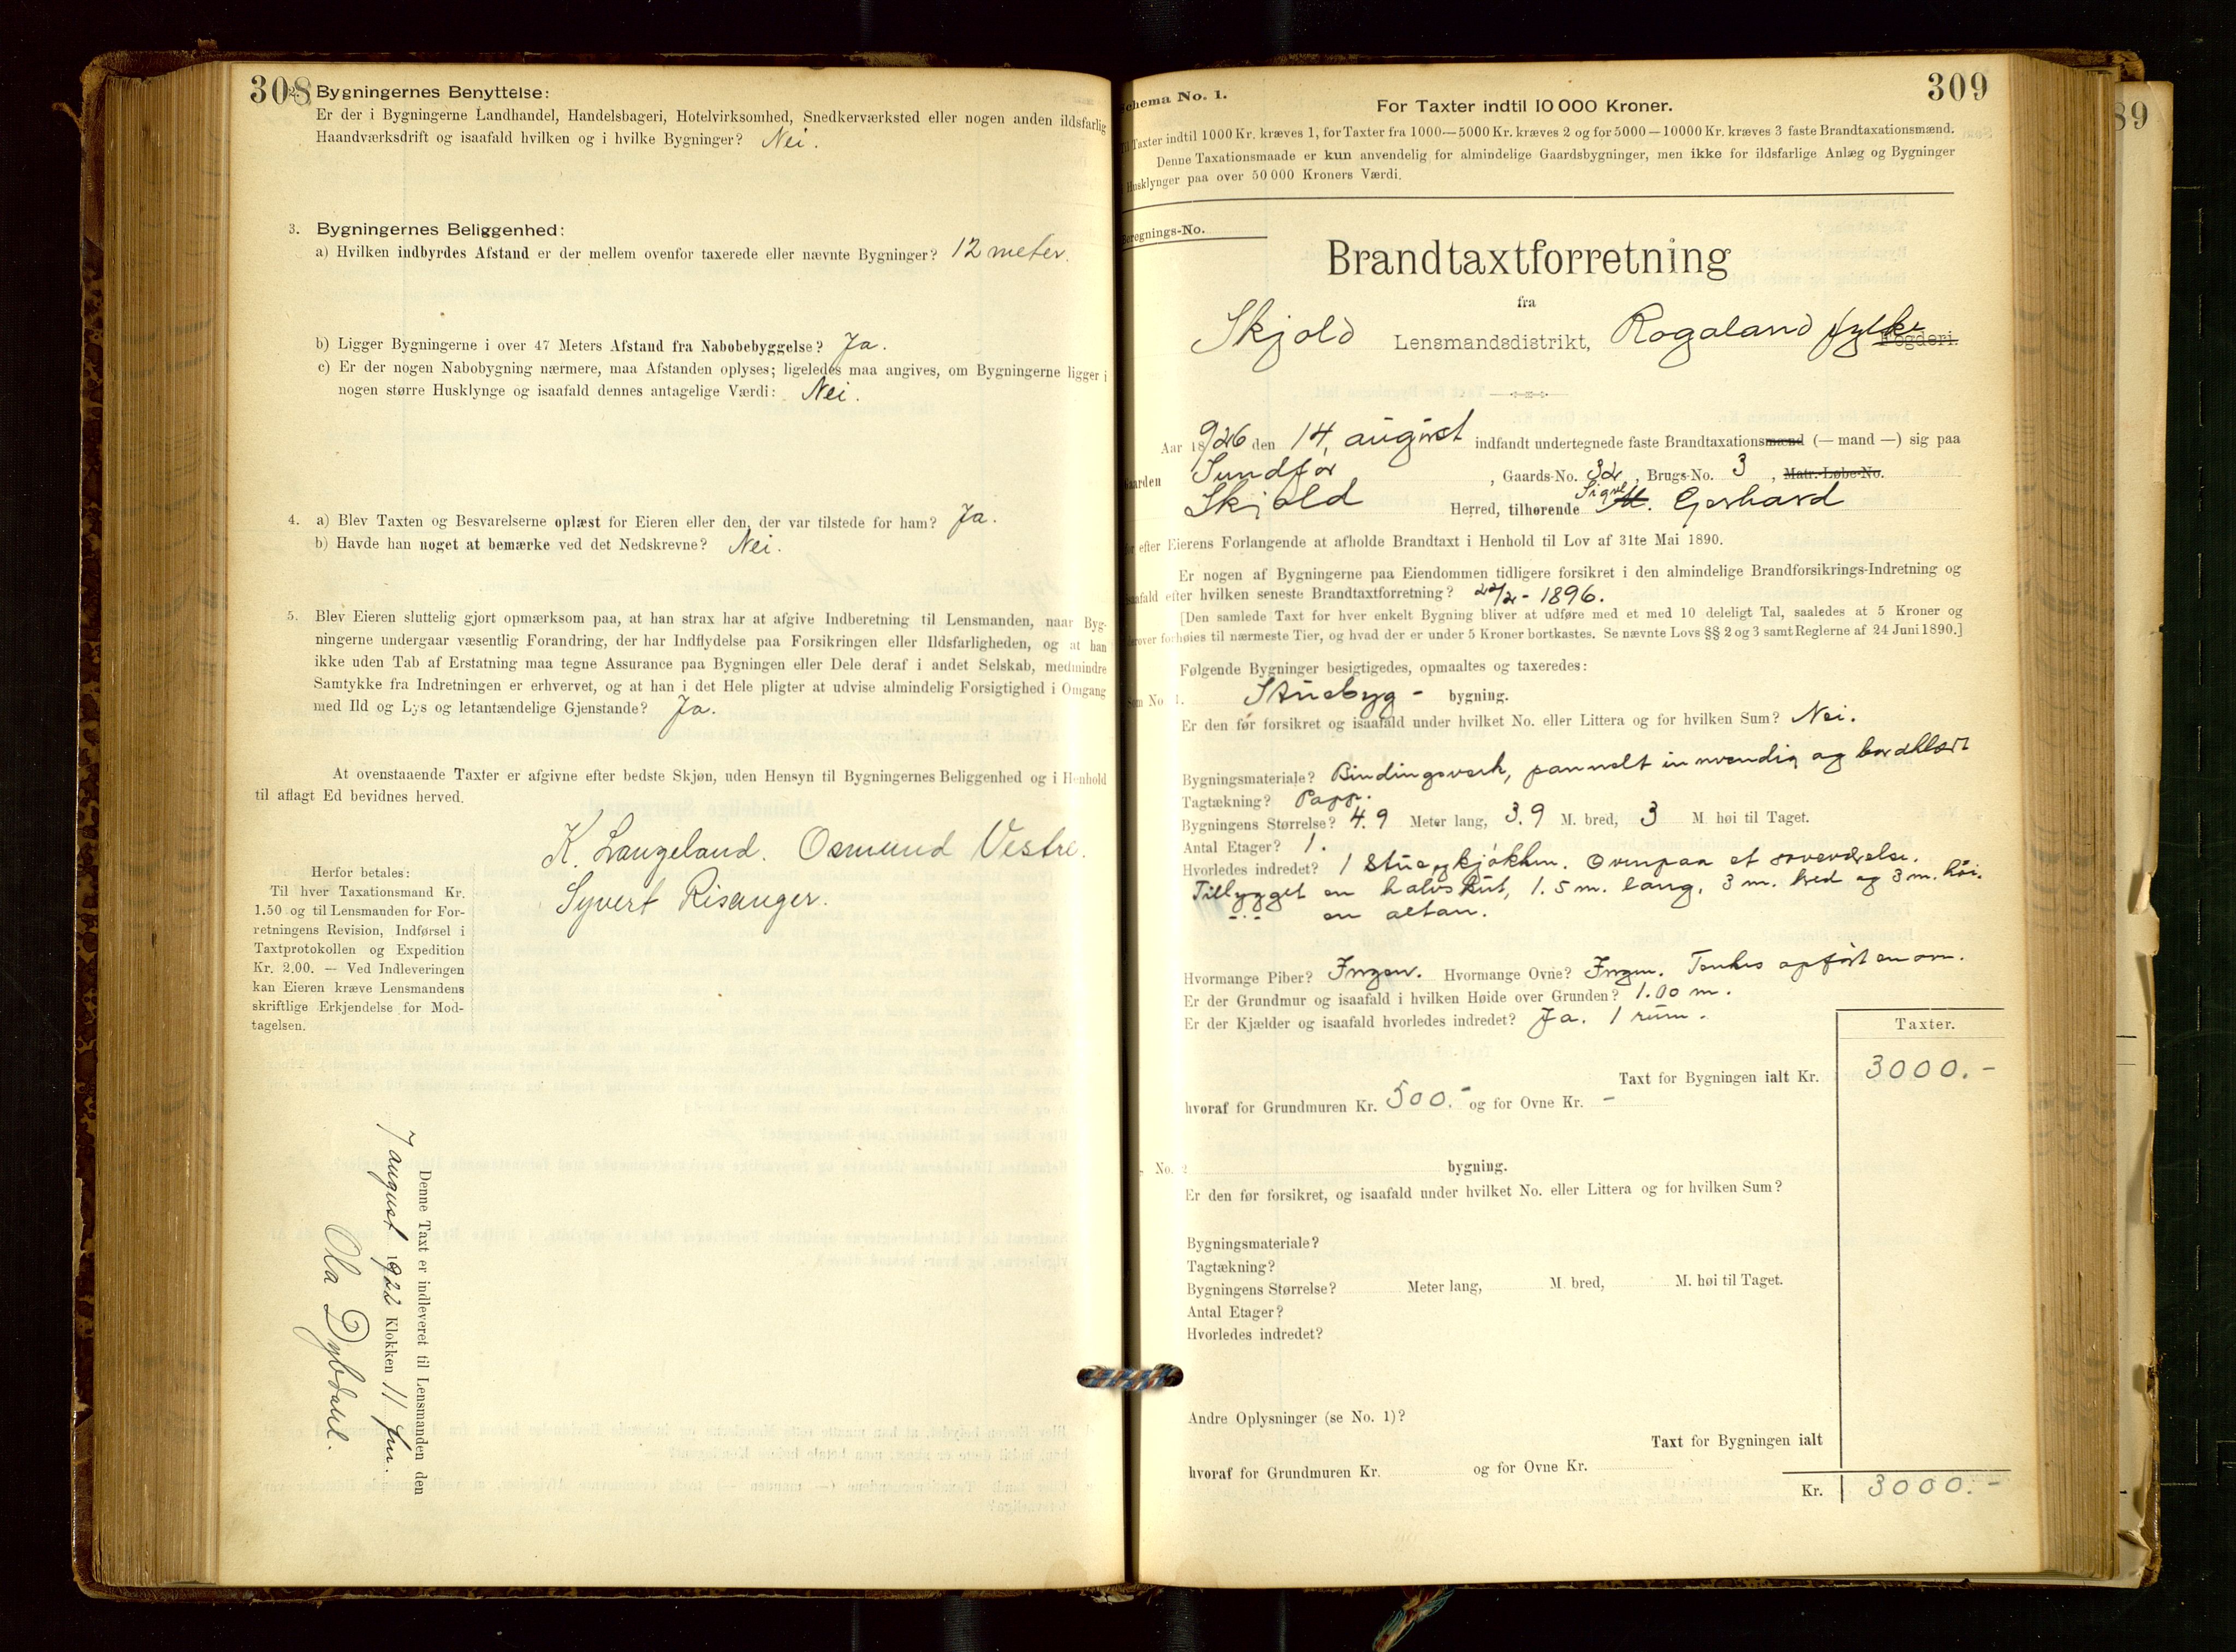 308
2. Bygningernes Benyttelse:
Er der i Bygningerne Landhandel, Handelsbageri, Hotelvirksomhed, Snedkerværksted eller nogen anden ildsfarlig
Haandværksdrift og isaafald hvilken og i hvilke Bygninger? Nei.
3. Bygningernes Beliggenhed:
a) Hvilken indbyrdes Afstand er der mellem ovenfor taxerede eller nævnte Bygninger? 12 meter.
b) Ligger Bygningerne i over 47 Meters Afstand fra Nabobebyggelse? Ja.
c) Er der nogen Nabobygning nærmere, maa Afstanden oplyses; ligeledes maa angives, om Bygningerne ligger i
nogen større Husklynge og isaafald dennes antagelige Værdi: Nei.
4. a) Blev Taxten og Besvarelserne oplæst for Eieren eller den, der var tilstede for ham? Ja.
b) Havde han noget at bemærke ved det Nedskrevne? Nei.
5. Blev Eieren sluttelig gjort opmærksom paa, at han strax har at afgive Indberetning til Lensmanden, naar Byg-
ningerne undergaar væsentlig Forandring, der har Indflydelse paa Forsikringen eller Ildsfarligheden, og at han
ikke uden Tab af Erstatning maa tegne Assurance paa Bygningen eller Dele deraf i andet Selskab, medmindre
Samtykke fra Indretningen er erhvervet, og at han i det Hele pligter at udvise almindelig Forsigtighed i Omgang
med Ild og Lys og letantændelige Gjenstande? Ja.
At ovenstaaende Taxter er afgivne efter bedste Skjøn, uden Hensyn til Bygningernes Beliggenhed og i Henhold
til aflagt Ed bevidnes herved.
K. Langeland. Osmund Vestre.
Syvert Risanger.
Herfor betales:
Til hver Taxationsmand Kr.
1.50 og til Lensmanden for For-
retningens Revision, Indførsel i
Taxtprotokollen og Expedition
Kr. 2.00. — Ved Indleveringen
kan Eieren kræve Lensmandens
skriftlige Erkjendelse for Mod-
tagelsen.
Denne Taxt er indleveret til Lensmanden den
7 august 1922 Klokken 11 fm.
Ola Dybdahl.
309
Schema No. 1.
For Taxter indtil 10 000 Kroner.
Til Taxter indtil 1000 Kr. kræves 1, for Taxter fra 1000—5000 Kr. kræves 2 og for 5000—10000 Kr. kræves 3 faste Brandtaxationsmænd.
Denne Taxationsmaade er kun anvendelig for almindelige Gaardsbygninger, men ikke for ildsfarlige Anlæg og Bygninger
i Husklynger paa over 50 000 Kroners Værdi.
Beregnings-No.
Brandtaxtforretning
fra
Skjold Lensmandsdistrikt, Rogaland fylke Fogderi.
Aar 1926 den 14. august indfandt undertegnede faste Brandtaxationsmænd (— mand —) sig paa
Gaarden Sundfør, Gaards-No. 32, Brugs-No. 3, Matr.-Løbe-No.
Skjold Herred, tilhørende Sigv. Gerhard
for efter Eierens Forlangende at afholde Brandtaxt i Henhold til Lov af 31te Mai 1890.
Er nogen af Bygningerne paa Eiendommen tidligere forsikret i den almindelige Brandforsikrings-Indretning og
isaafald efter hvilken seneste Brandtaxtforretning? 22/2 - 1896.
[Den samlede Taxt for hver enkelt Bygning bliver at udføre med et med 10 deleligt Tal, saaledes at 5 Kroner og
derover forhøies til nærmeste Tier, og hvad der er under 5 Kroner bortkastes. Se nævnte Lovs §§ 2 og 3 samt Reglerne af 24 Juni 1890.]
Følgende Bygninger besigtigedes, opmaaltes og taxeredes:
Som No 1. Stuebyg - bygning.
Er den før forsikret og isaafald under hvilket No. eller Littera og for hvilken Sum? Nei.
Bygningsmateriale? Bindingsverk, pannelt innvendig og bordklædt
Tagtækning? Papp.
Bygningens Størrelse? 4.9 Meter lang, 3.9 M. bred, 3 M. høi til Taget.
Antal Etager? 1.
Hvorledes indredet? 1 stue og kjøkken. Ovenpaa et soveværelse.
Tilbygget en halvskut, 1.5 m. lang, 3 m. bred og 3 m. høi.
-"- en altan.
Hvormange Piber? Ingen. Hvormange Ovne? Ingen. Tenkes opført en ovn.
Er der Grundmur og isaafald i hvilken Høide over Grunden? 1.00 m.
Er der Kjælder og isaafald hvorledes indredet? Ja. 1 rum.
Taxter.
Taxt for Bygningen ialt Kr. 3000.-
hvoraf for Grundmuren Kr. 500.- og for Ovne Kr. -
No. 2 bygning.
Er den før forsikret, og isaafald under hvilket No. eller Littera og for hvilken Sum?
Bygningsmateriale?
Tagtækning?
Bygningens Størrelse? Meter lang, M. bred, M. høi til Taget.
Antal Etager?
Hvorledes indredet?
Andre Oplysninger (se No. 1)?
Taxt for Bygningen ialt
hvoraf for Grundmuren Kr. og for Ovne Kr.
Kr. 3000.-
89